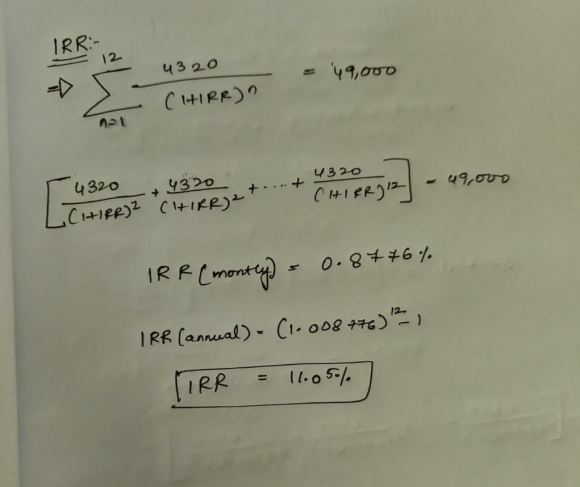 IRR:-
=> 12 ∑ n=1 4320 / (1+IRR)^n = 49,000
[4320 / (1+IRR)^2 + 4320 / (1+IRR)^2 + .... + 4320 / (1+IRR)^12] - 49,000
IRR (montly) = 0.8776%
IRR (annual) - (1.008776)^12 - 1
IRR = 11.05%